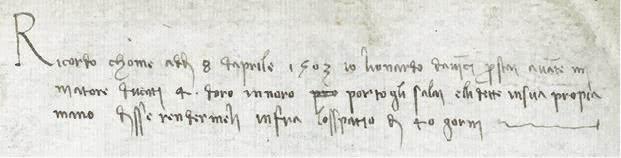 Ricordo chome addi 8 daprile 1503 io lionardo davinci prestai avante m
matore ducati 4 doro innoro portogli salai elli dette insua propria
mano disse rendermeli infra losspatio di 40 gorni